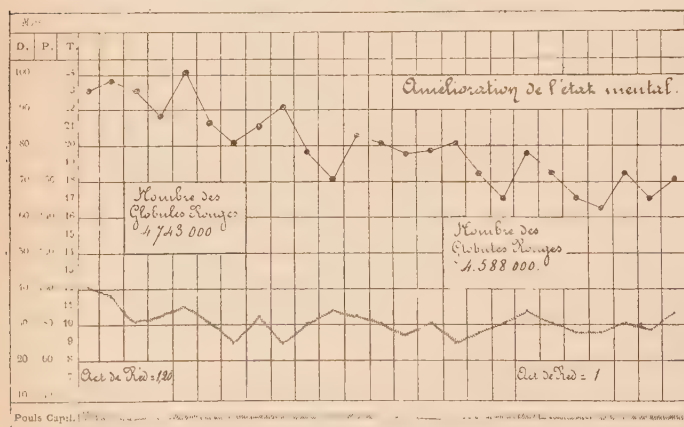 D. P. T.
100
90
80
21
20
18
17
16
10
9
8
7
20
10
Amélioration de l'état mental.
Nombre des
Globules Rouges
4743000
Nombre des
Globules Rouges
4.588000.
Act de Réd = 1,20
Act de Réd = 1
Pouls Capil.